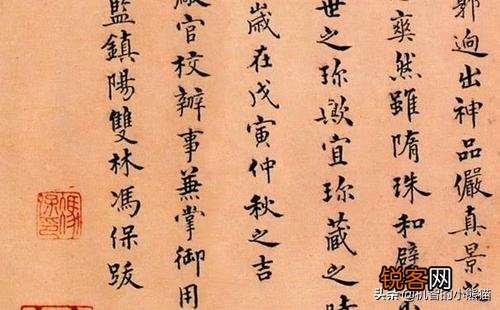 郭逈出神品儼真景
之爽然雖隋珠和璧
世之珍歟宜珍藏之時
歲在戊寅仲秋之吉
廠官校辦事兼掌御用
監鎮陽雙林馮保跋
锐客网
头条 @机智的小熊猫